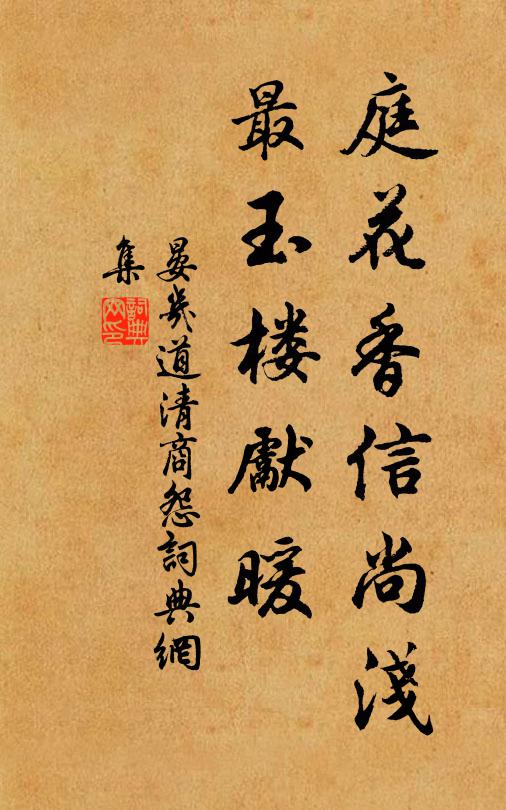 庭花香信尚淺
最玉楼獻暖
晏幾道清商怨詞典網
集
詞典
网印